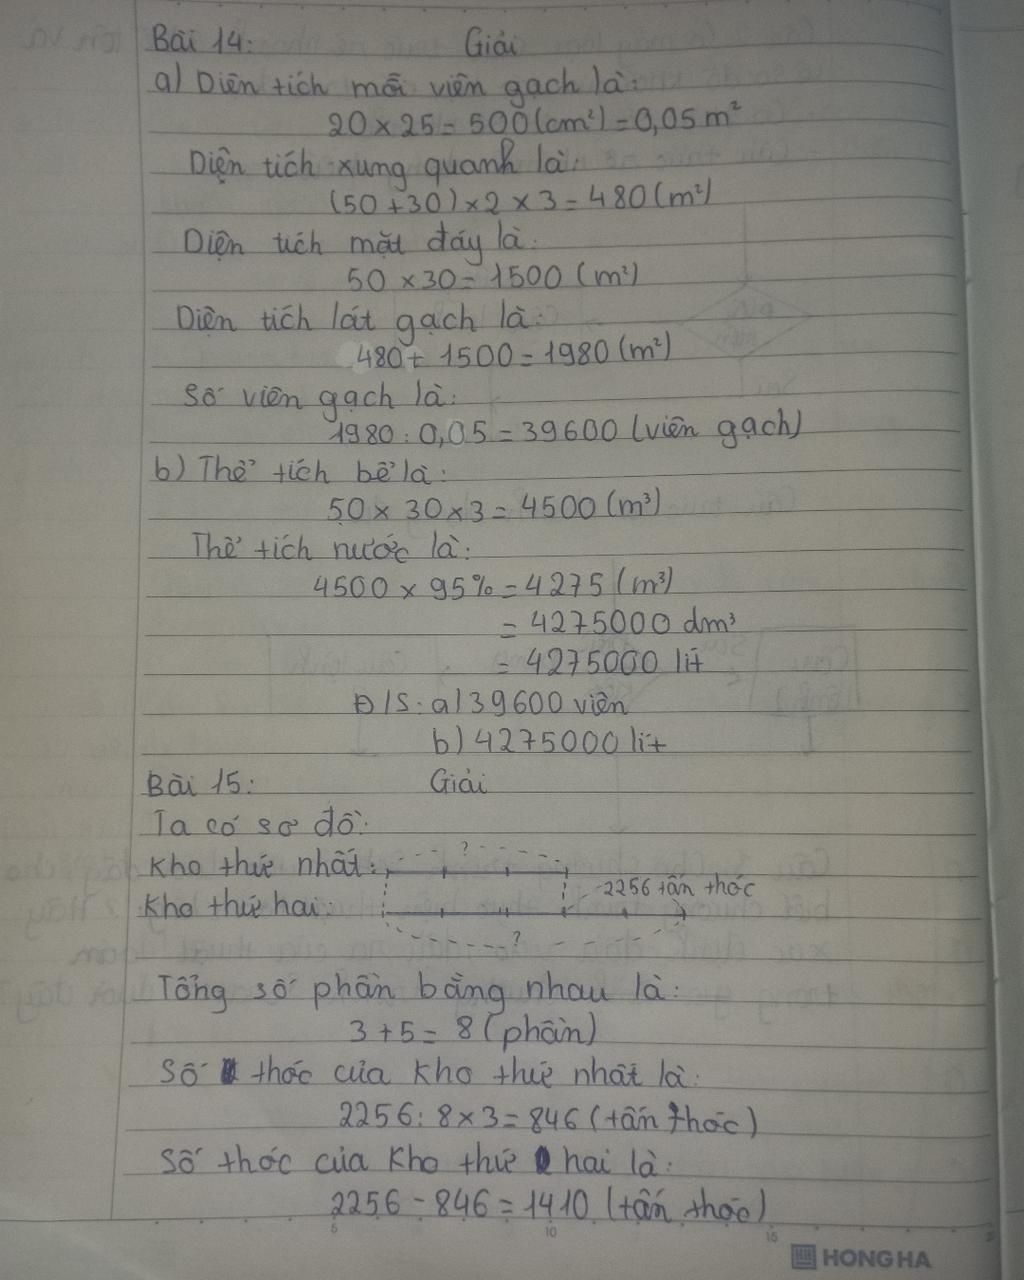 Bài 14: Giải
a) Diên tích mỗi viên gạch là:
20 x 25 = 500 (cm²) = 0,05 m²
Diện tích xung quanh là:
(50 + 30) x 2 x 3 = 480 (m²)
Diện tích mặt đáy là:
50 x 30 = 1500 (m²)
Diện tích lát gạch là:
480 + 1500 = 1980 (m²)
Số viên gạch là:
1980 : 0,05 = 39600 (viên gạch)
b) Thể tích bể là:
50 x 30 x 3 = 4500 (m³)
Thể tích nước là:
4500 x 95% = 4275 (m³)
= 4275000 dm³
= 4275000 lít
Đ/S: a) 39600 viên
b) 4275000 lít
Bài 15: Giải
Ta có sơ đồ:
Kho thứ nhất: ?
2256 tấn thóc
Kho thứ hai:
?
Tổng số phần bằng nhau là:
3 + 5 = 8 (phần)
Số thóc của kho thứ nhất là:
2256 : 8 x 3 = 846 (tấn thóc)
Số thóc của kho thứ hai là:
2256 - 846 = 1410 (tấn thóc)
5 10 15
HONG HA